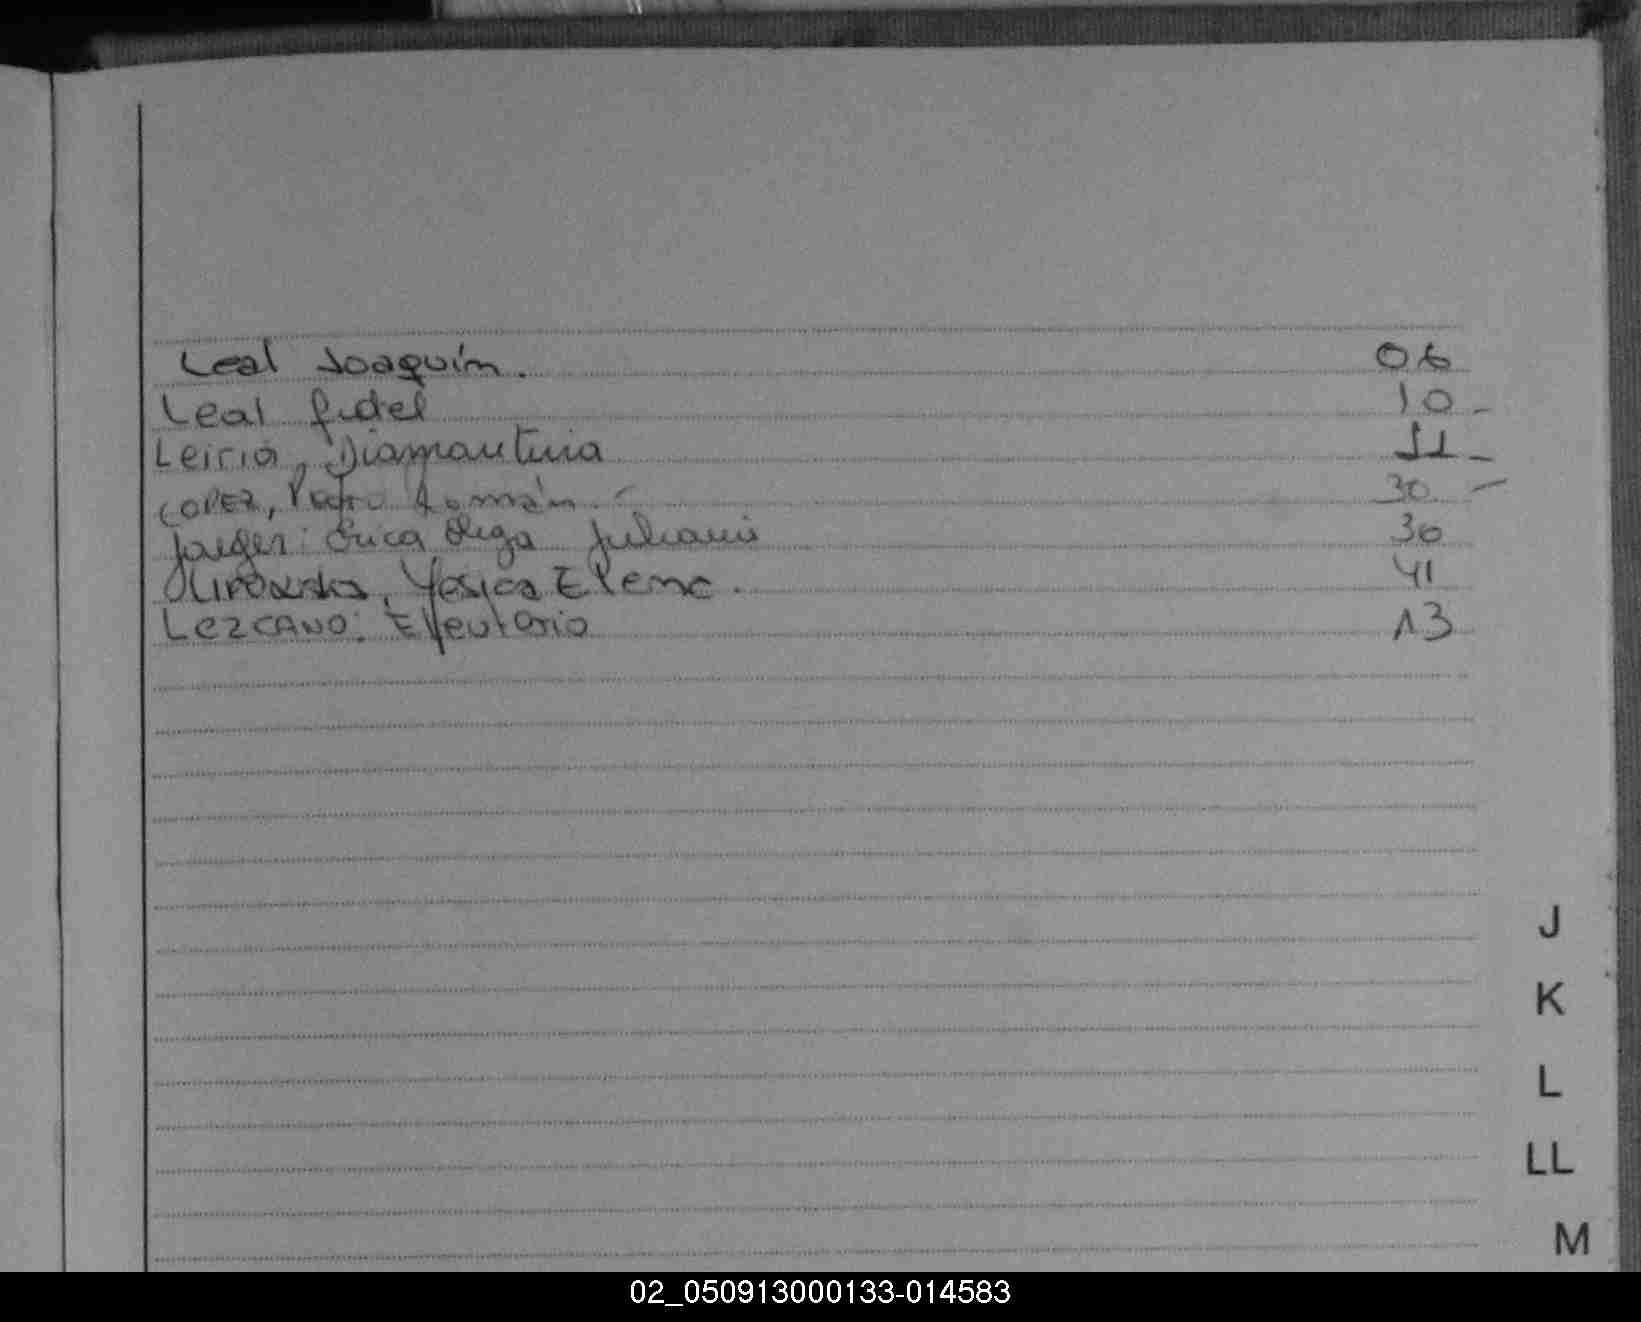 Leal Joaquín. 06
Leal fidel 10 -
Leiria, Diamantina 11 -
LOPEZ, Pedro Román. - 30 -
Jaeger: Erica Olga Juliana 30
Yesica Elena. 41
LEZCANO: Eleuterio 13
J
K
L
LL
M
02_050913000133-014583